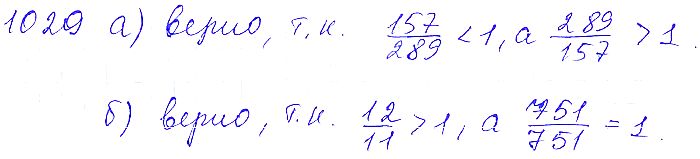 1029 а) верно, т.к. 157/289 < 1, а 289/157 > 1.
б) верно, т.к. 12/11 > 1, а 751/751 = 1.